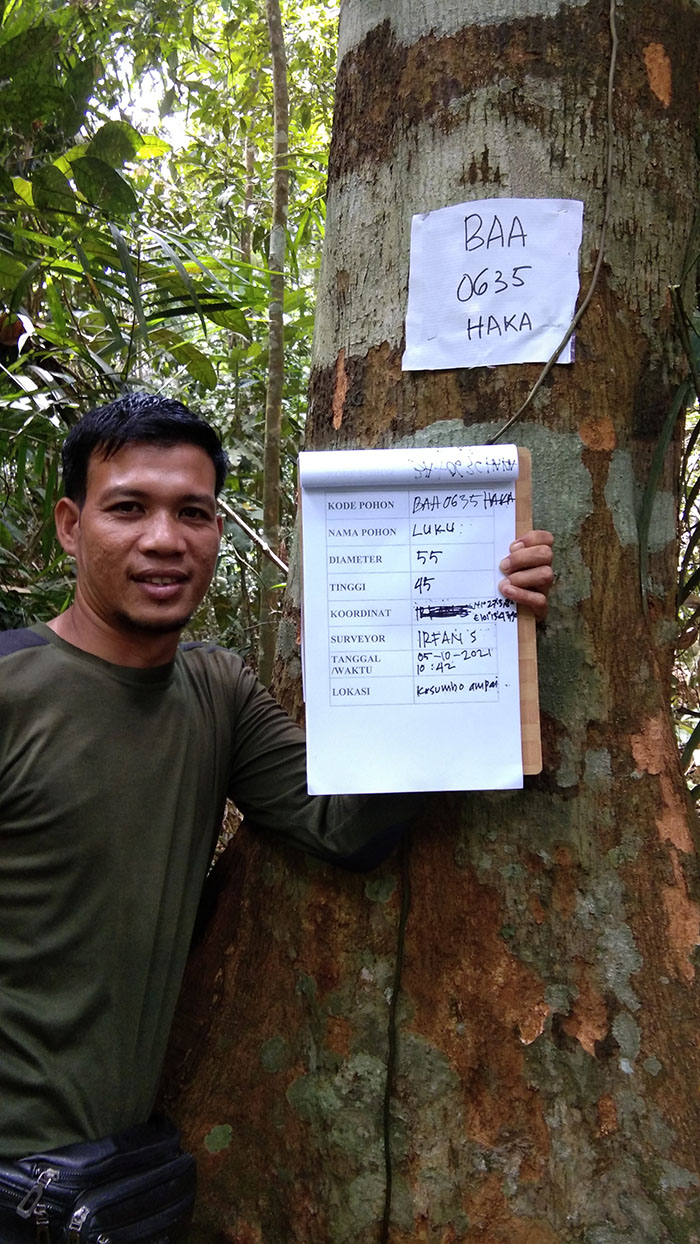 BAA
0635
HAKA
KODE POHON BAA 0635 HAKA
NAMA POHON LUKU
DIAMETER 55
TINGGI 45
KOORDINAT
SURVEYOR IRFAN S
TANGGAL 05-10-2021
/WAKTU 10:42
LOKASI Kesumbo ampai